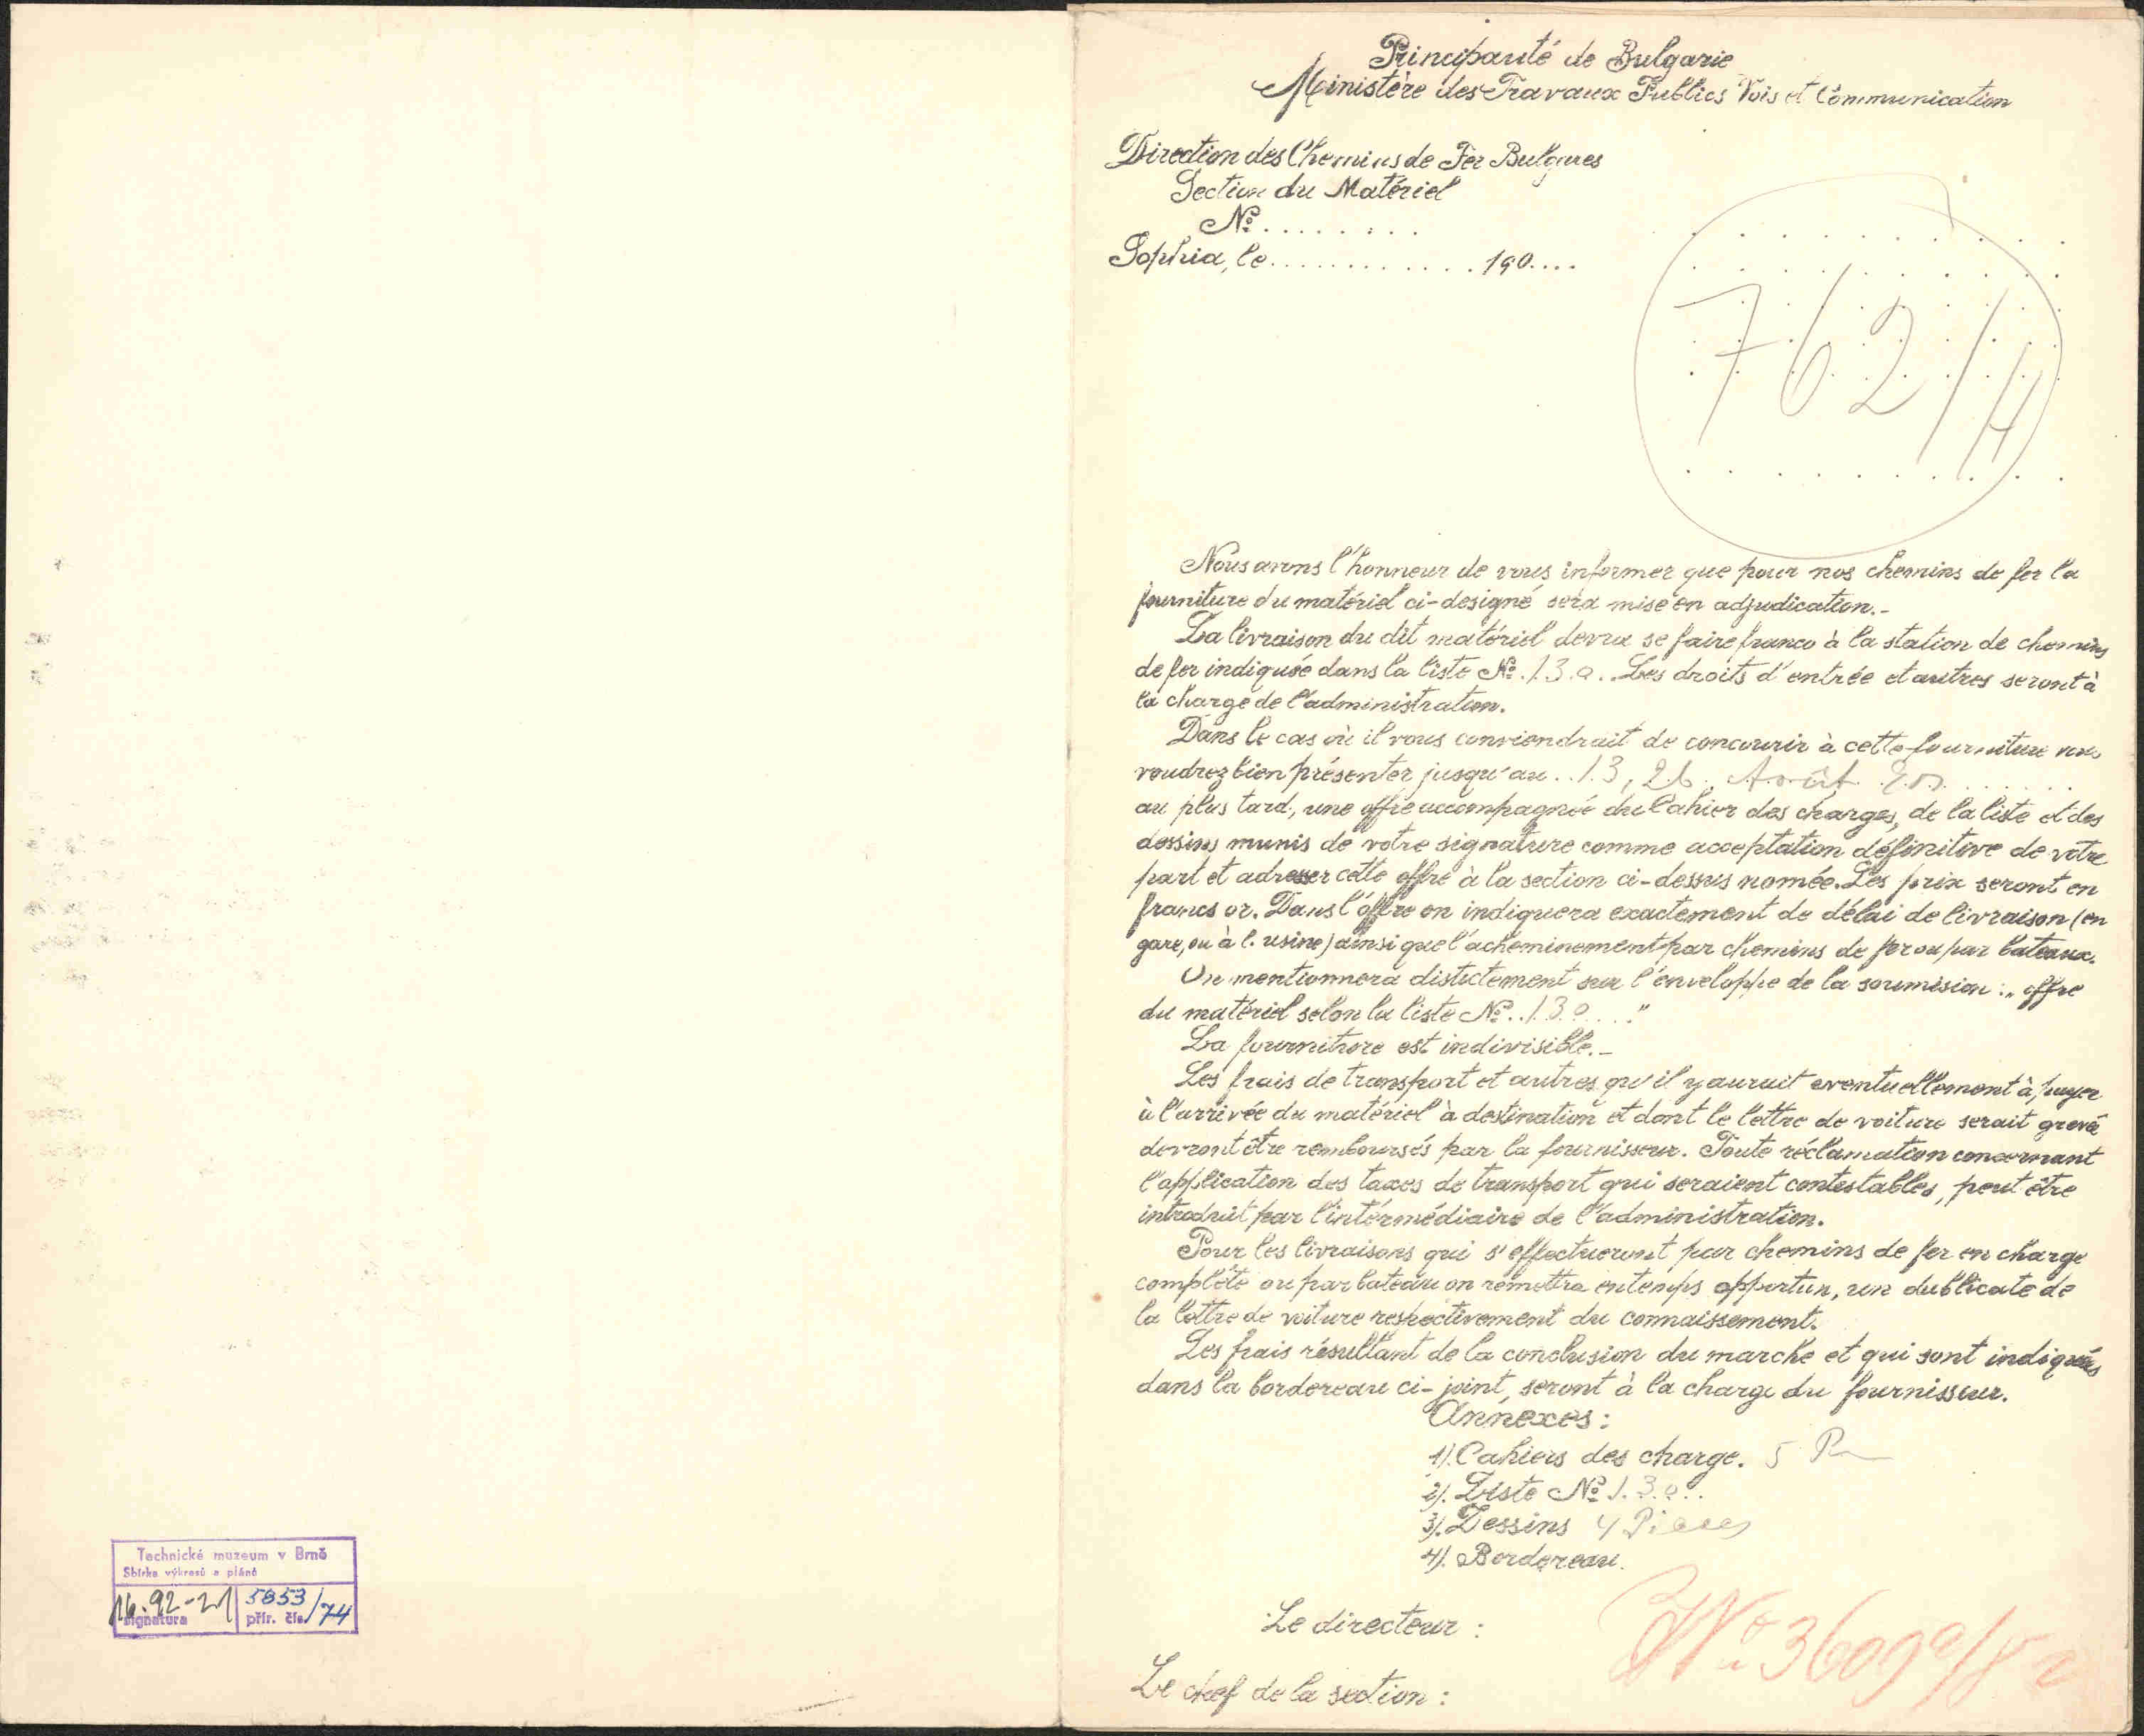 Technické muzeum v Brně
Sbírka výkresů a plánů
16.92-21 5853/74
signatura přír. čís.
Principauté de Bulgarie
Ministère des Travaux Publics Vois et Communication
Direction des Chemins de Fer Bulgares
Section du Matériel
№ . . . . . . . .
Sophia, le . . . . . . . . . . . . 190....
762/H
Nous avons l'honneur de vous informer que pour nos chemins de fer la
fourniture du matériel ci-designé sera mise en adjudication.-
La livraison du dit matériel devra se faire franco à la station de chemins
de fer indiquée dans la liste №. 13.a.. Les droits d'entrée et autres seront à
la charge de l'administration.
Dans le cas où il vous conviendrait de concourir à cette fourniture vous
voudrez bien présenter jusqu'au . . 13, 26. Août
au plus tard, une offre accompagnée du Cahier des charges, de la liste et des
dessins munis de votre signature comme acceptation définitive de votre
part et adresser cette offre à la section ci-dessus nomée. Les prix seront en
francs or. Dans l'offre on indiquera exactement de délai de livraison (en
gare, ou à l. usine) ainsi que l'acheminement par chemins de fer ou par bateaux.
On mentionnera distictement sur l'enveloppe de la soumision : „ offre
du matériel selon la liste № . . 13a . . . "
La fourniture est indivisible.-
Les frais de transport et autres qu'il y aurait eventuellement à payer
à l'arrivée du matériel à destination et dont le lettre de voiture serait grevé
devront être remboursés par la fournisseur. Toute réclamation concernant
l'application des taxes de transport qui seraient contestables, peut être
introduit par l'intérmédiaire de l'administration.
Pour les livraisons qui s'effectueront par chemins de fer en charge
complète ou par bateau on remettra en temps opportun, un dublicate de
la lettre de voiture respectivement du connaissement.
Les frais résultant de la conclusion du marche et qui sont indiqués
dans la bordereau ci-joint, seront à la charge du fournisseur.
Annexes :
1). Cahiers des charge. 5
2). Liste № 13a..
3). Dessins 4 Pieces
4). Bordereau.
Le directeur :
Le chef de la section :
№ 3609a/